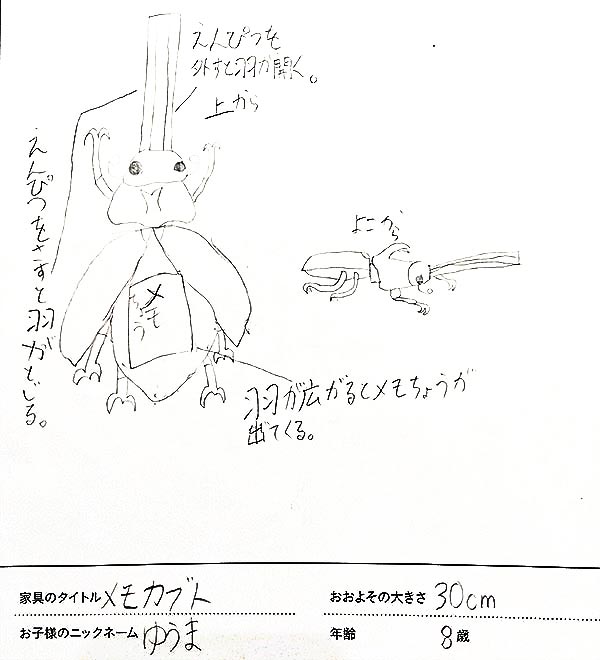 えんぴつを
外すと羽が開く。
上から
えんぴつをさすと羽がとじる。
よこから
メモ
ちょう
羽が広がるとメモちょうが
出てくる。
家具のタイトル メモカブト
おおよその大きさ 30cm
お子様のニックネーム ゆうま
年齢 8歳